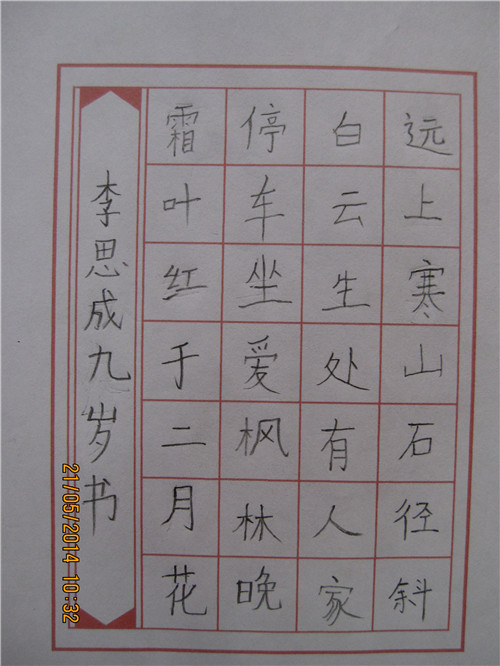 远上寒山石径斜
白云生处有人家
停车坐爱枫林晚
霜叶红于二月花
李思成九岁书
21/05/2014 10:32